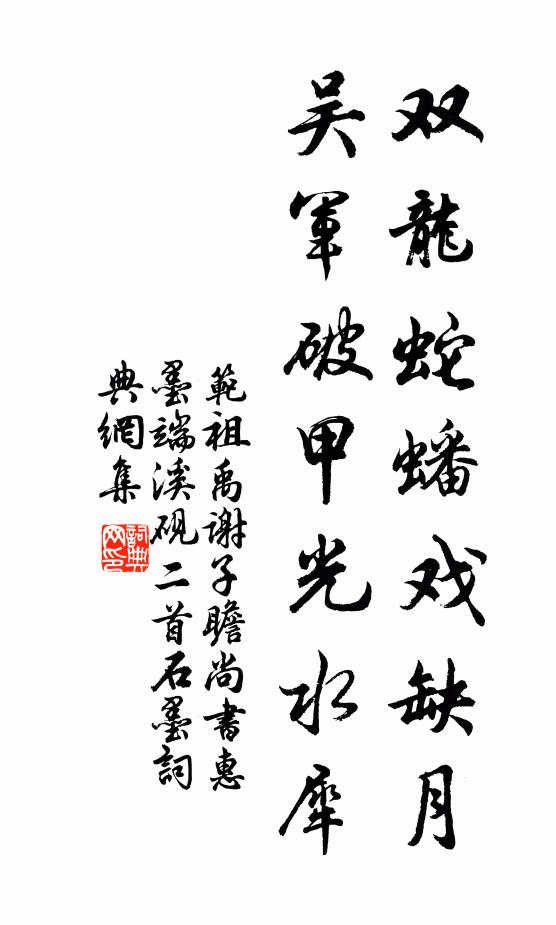 双龍蛇蟠戏缺月
吴軍破甲光水犀
範祖禹谢子瞻尚書惠
墨端溪砚二首石墨詞
典網集
詞典
网印